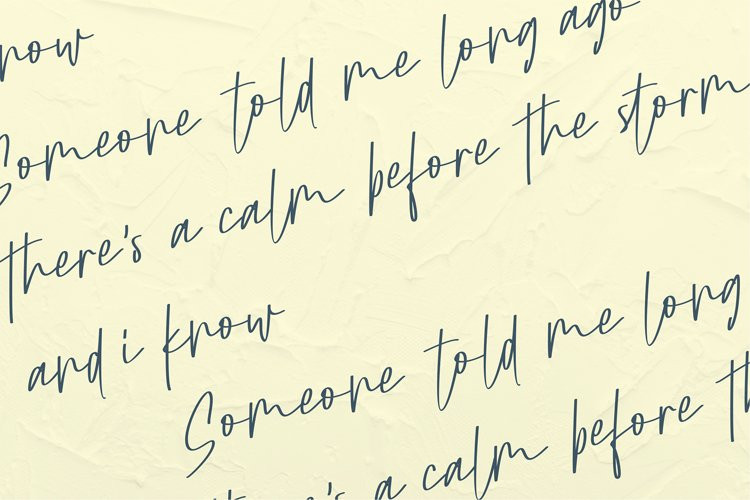 know
Someone told me long ago
there's a calm before the storm
and i know
Someone told me long
there's a calm before